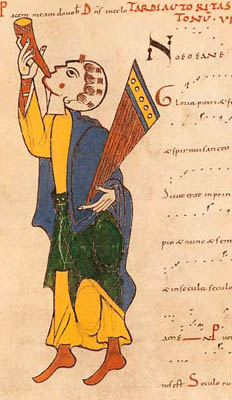 Pacem meam do vob Dns in celo TARDI AUTORITAS
TONU VI
NOEOEANE
Gloria patri & f
& spirui sancto
Sicut erat in prin
pio & nunc & sem
& in secula seculo
Seculo ru